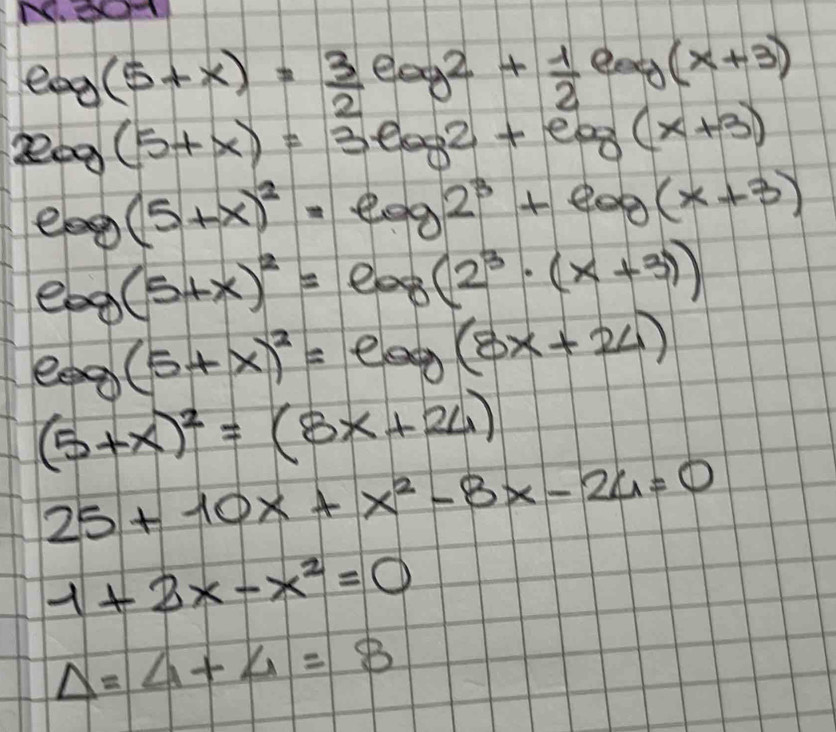 N. 304
log(5+x) = 3/2 log2 + 1/2 log(x+3)
2log(5+x) = 3log2 + log(x+3)
log(5+x)² = log2³ + log(x+3)
log(5+x)² = log(2³·(x+3))
log(5+x)² = log(8x+24)
(5+x)² = (8x+24)
25+10x+x²-8x-24=0
1+2x-x²=0
Δ=4+4=8